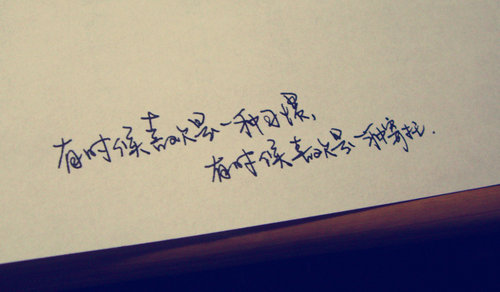 有时候喜欢是一种习惯,
有时候喜欢是一种寄托.